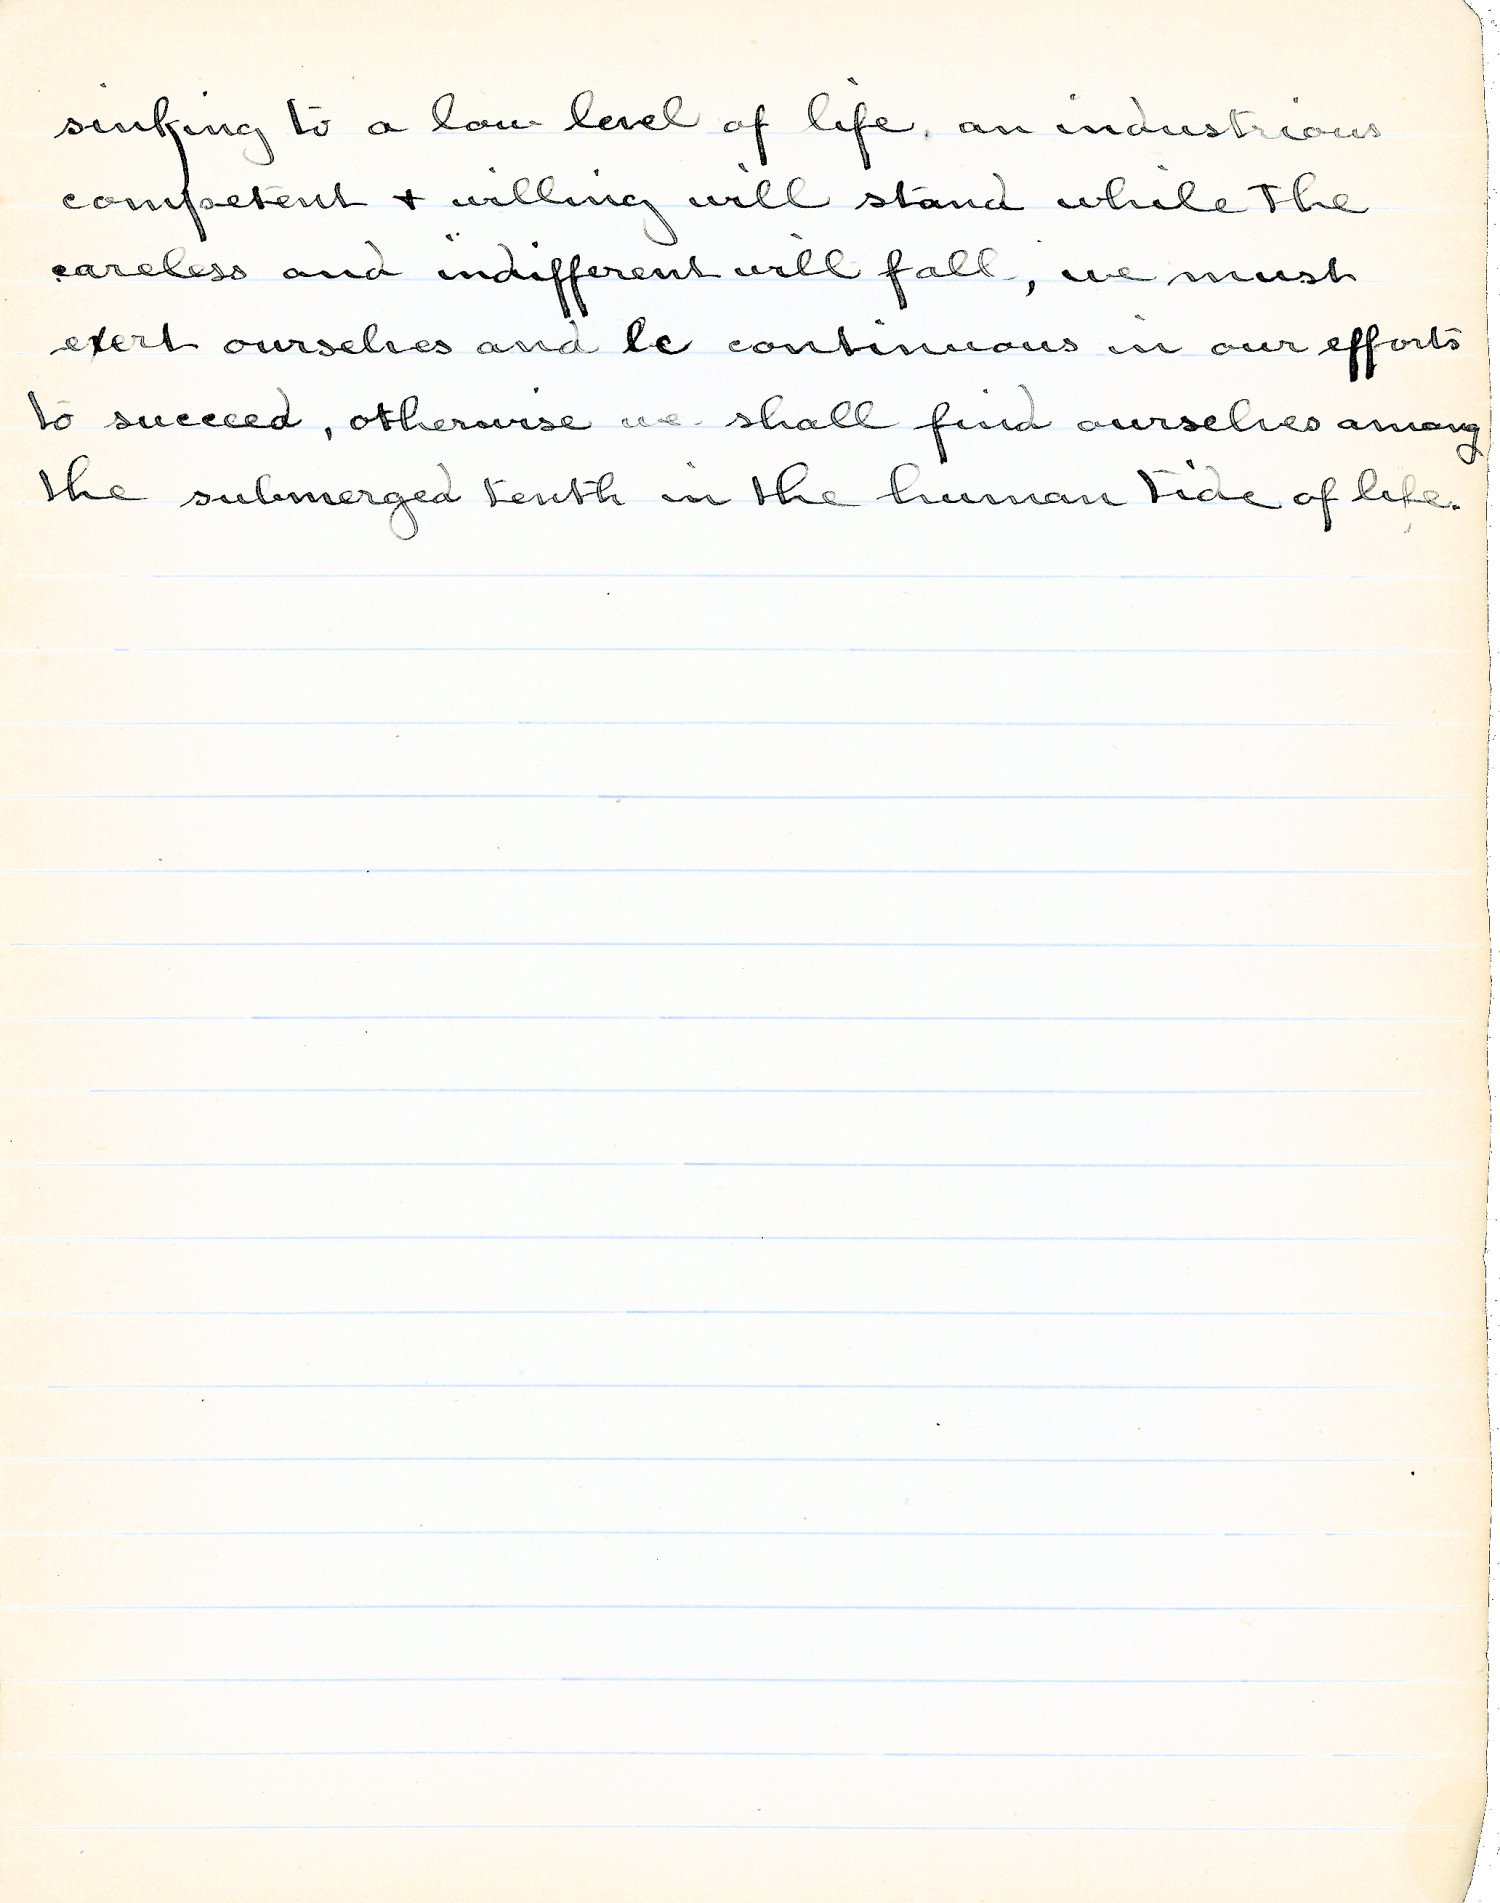 sinking to a low level of life. an industrious
competent + willing will stand while the
careless and indifferent will fall, we must
exert ourselves and be continuous in our efforts
to succeed, otherwise we shall find ourselves among
the submerged tenth in the human tide of life.